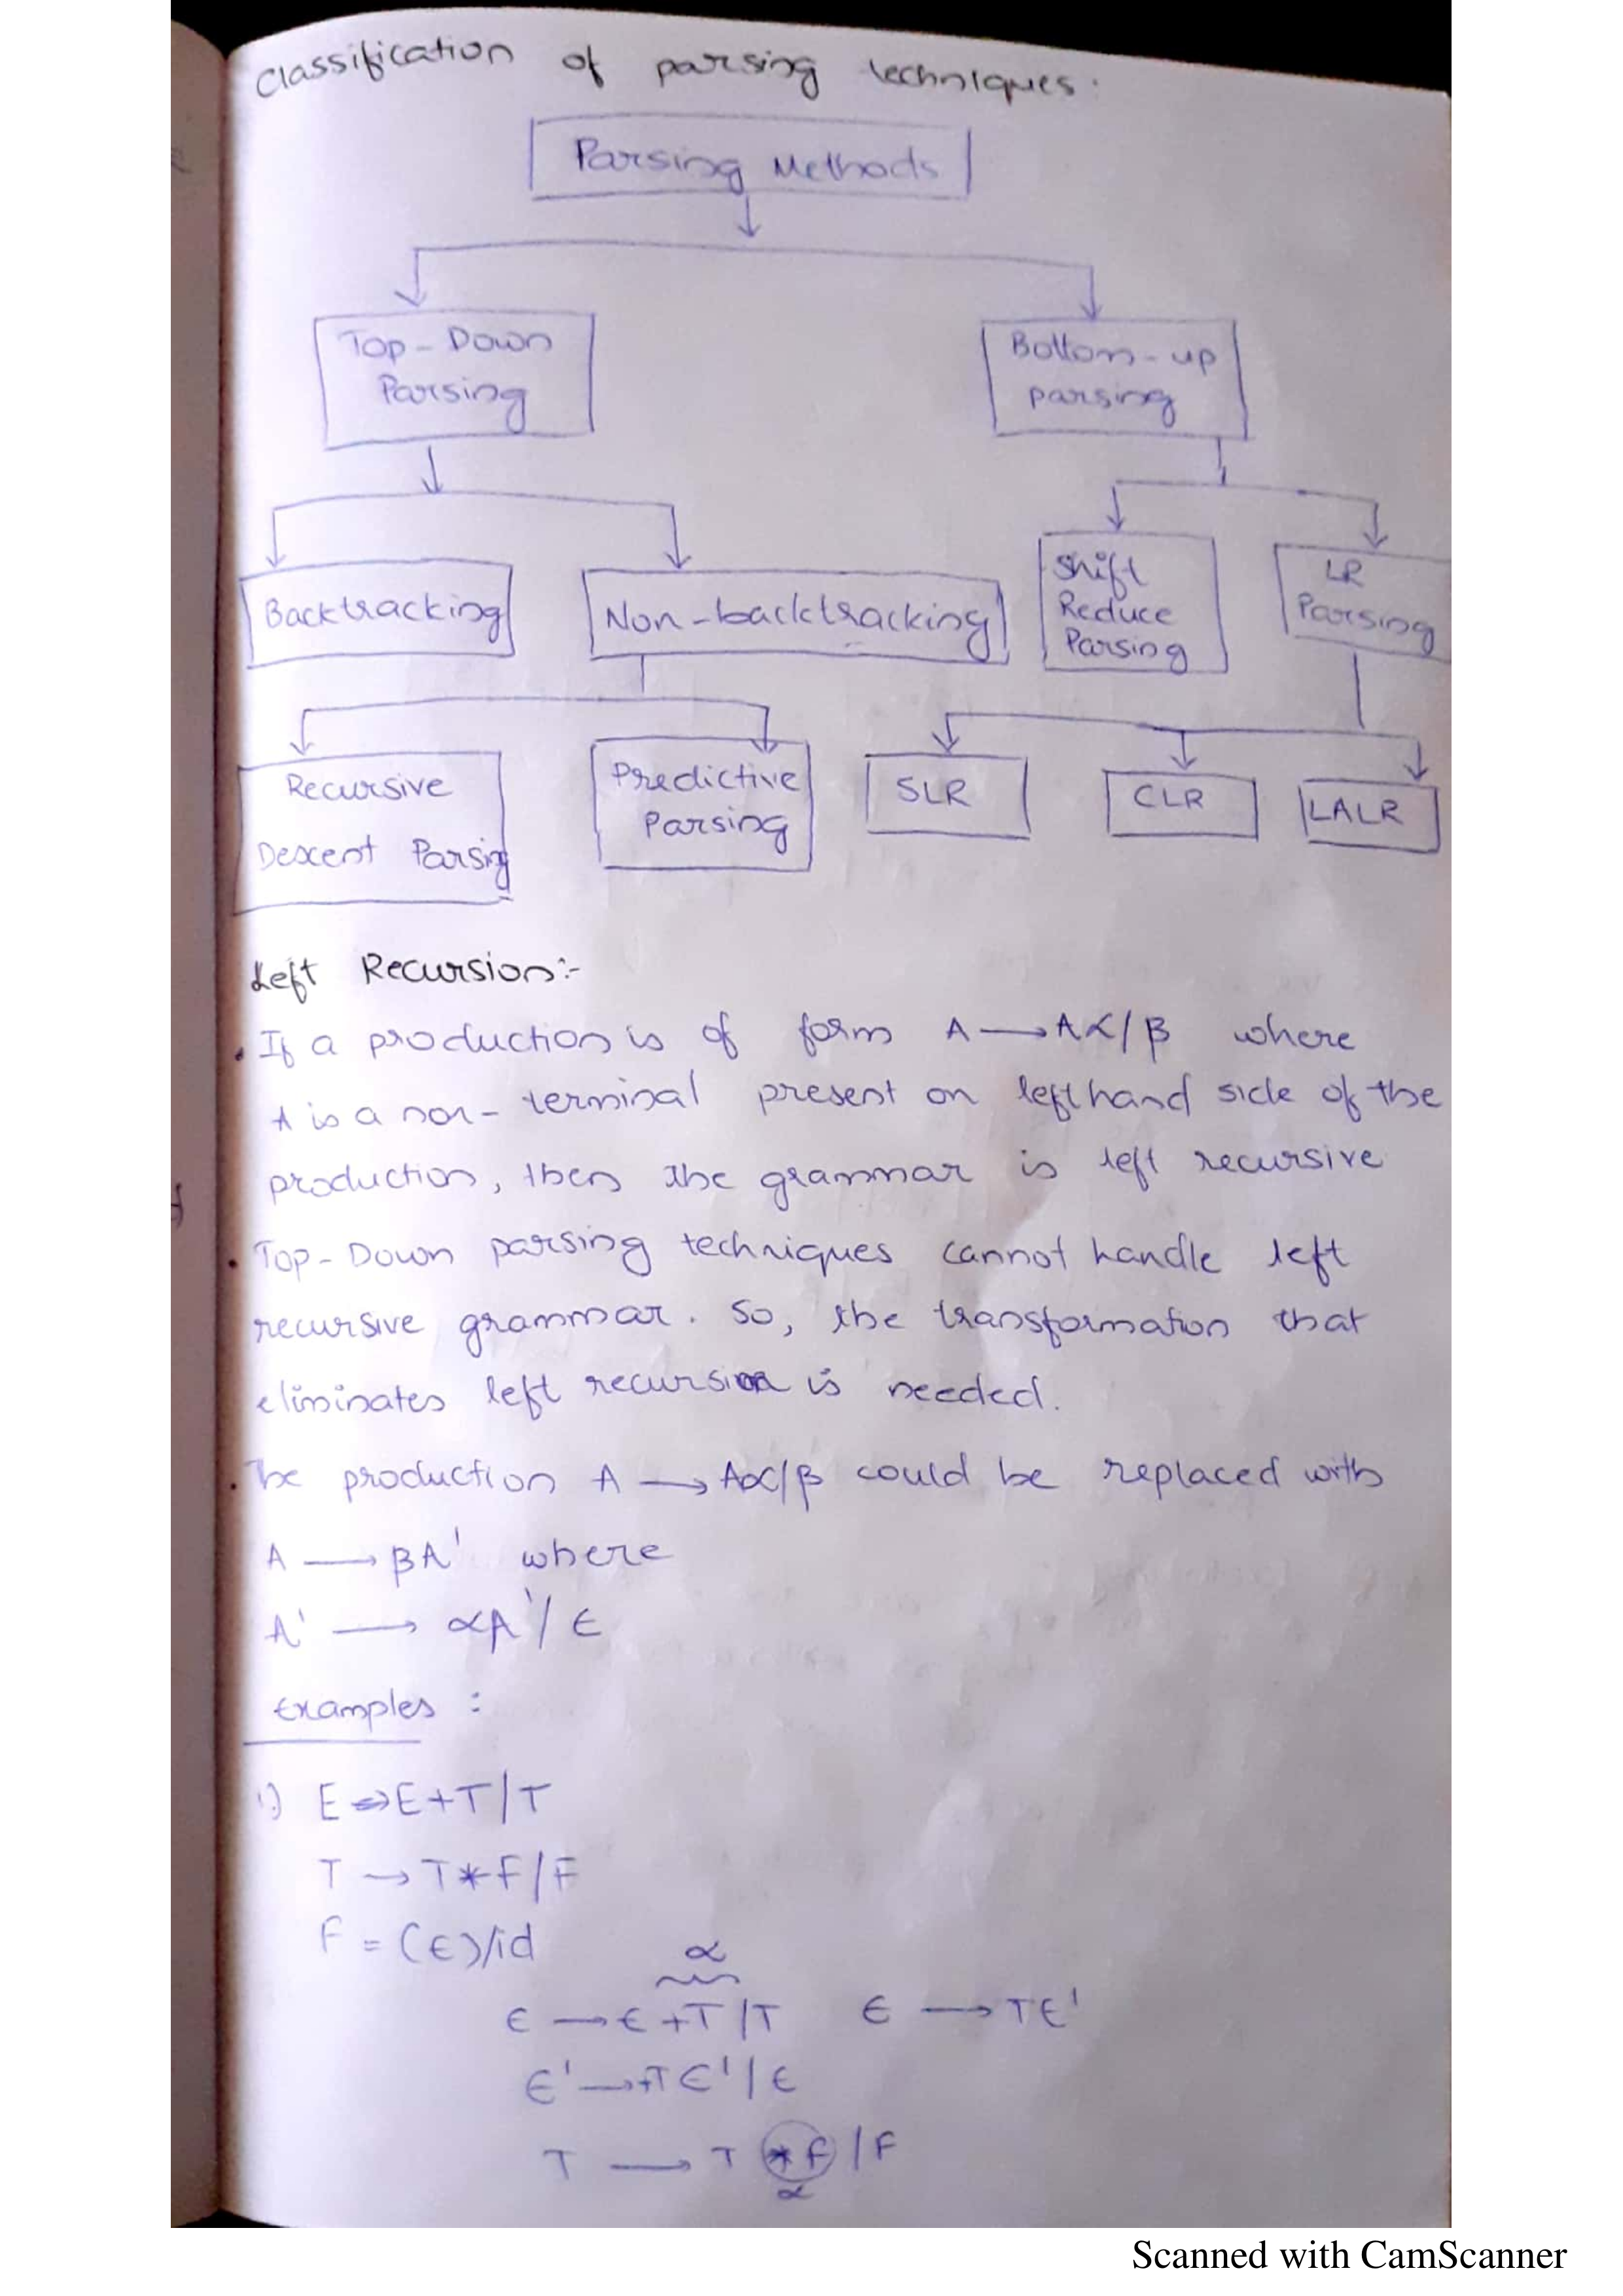 Classification of parsing techniques:
Parsing Methods
Top-Down
Parsing
Bottom-up
parsing
Backtracking
Non-backtracking
Shift
Reduce
Parsing
LR
Parsing
Recursive
Descent Parsing
Predictive
Parsing
SLR
CLR
LALR
Left Recursion:-
. If a production is of form A → Aα/β where
A is a non-terminal present on lefthand side of the
production, then the grammar is left recursive
. Top-Down parsing techniques cannot handle left
recursive grammar. So, the transformation that
eliminates left recursion is needed.
. The production A → Aα/β could be replaced with
A → βA' where
A' → αA'/ε
Examples :
1.) E → E+T/T
T → T*F/F
F = (E)/id
α
E → E+T/T E → TE'
E' → +TE'/ε
T → T *F /F
α
Scanned with CamScanner